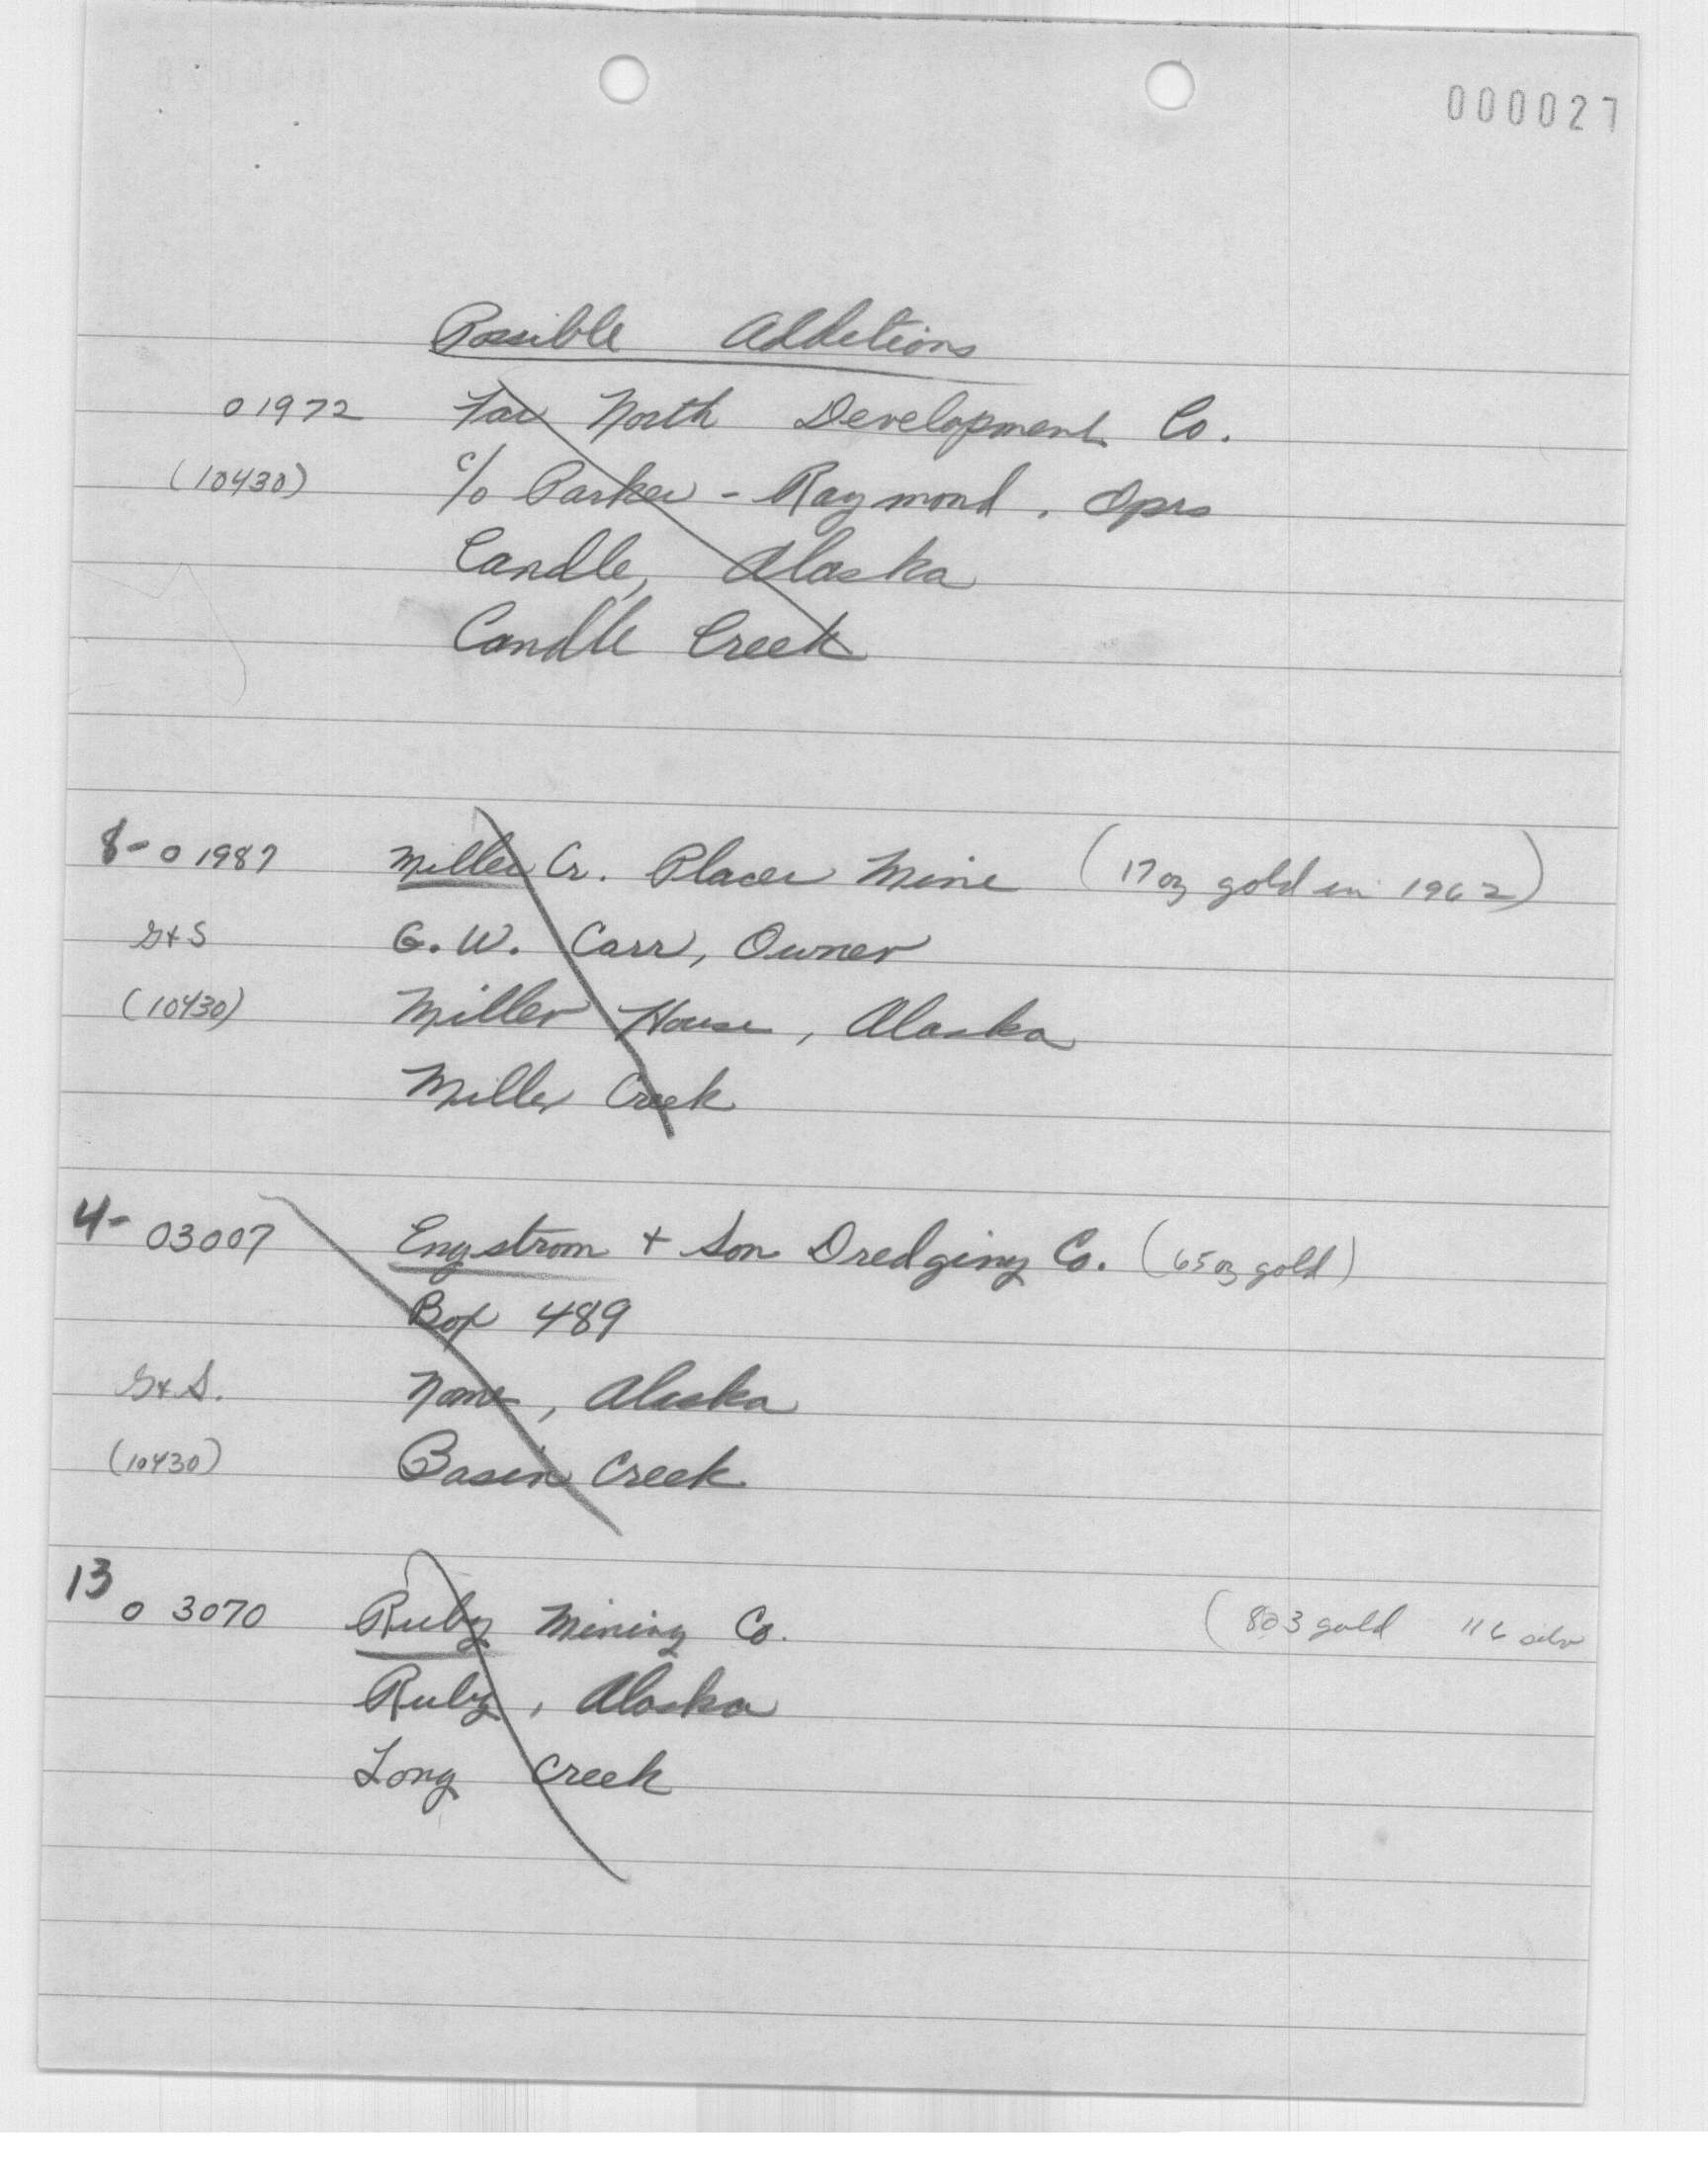 000027
Possible Additions
01972 Far North Development Co.
(10430) c/o Parker - Raymond, Oprs
Candle, Alaska
Candle Creek
8- 01987 Miller Cr. Placer Mine (17 oz gold in 1962)
G+S G. W. Carr, Owner
(10430) Miller House, Alaska
Miller Creek
4- 03007 Engstrom + Son Dredging Co. (65 oz gold)
Box 489
G+S. Nome, Alaska
(10430) Basin Creek
13 03070 Ruby Mining Co. (803 gold 116 silv
Ruby, Alaska
Long Creek